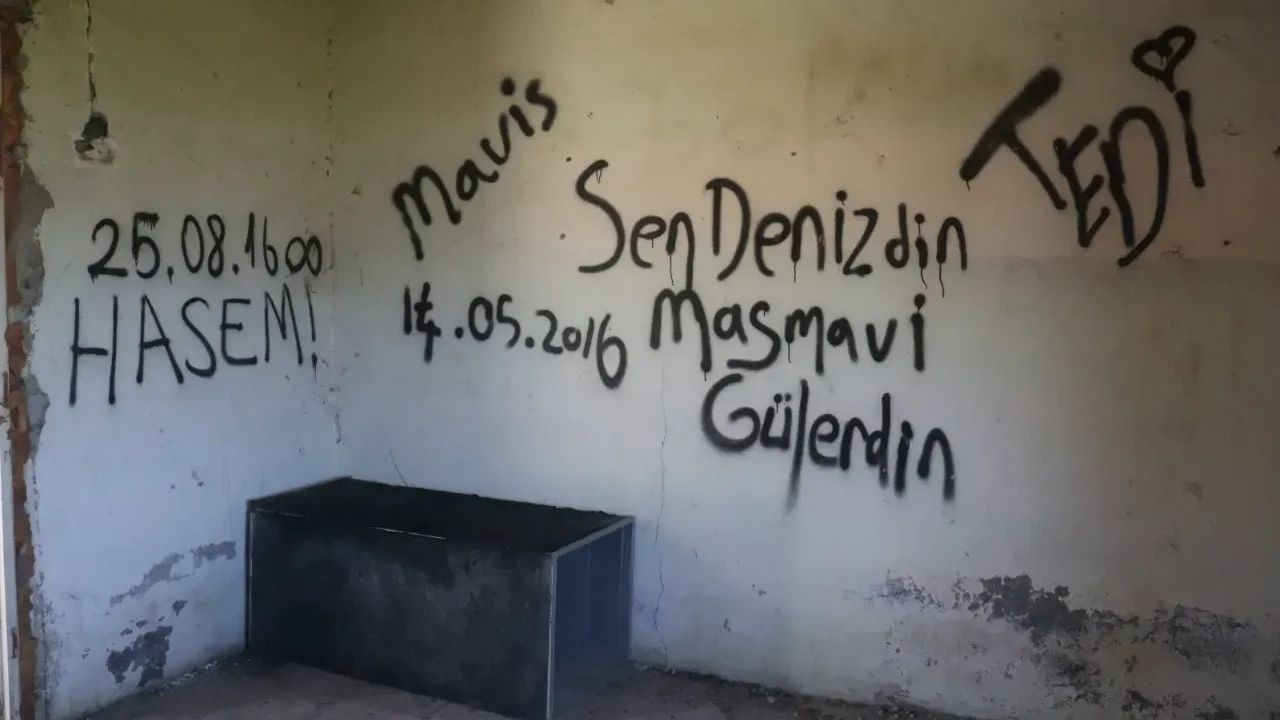 25.08.1600
HASEM!
Mavis
14.05.2016
Sen Denizdin
Masmavi
Gülerdin
TEDi